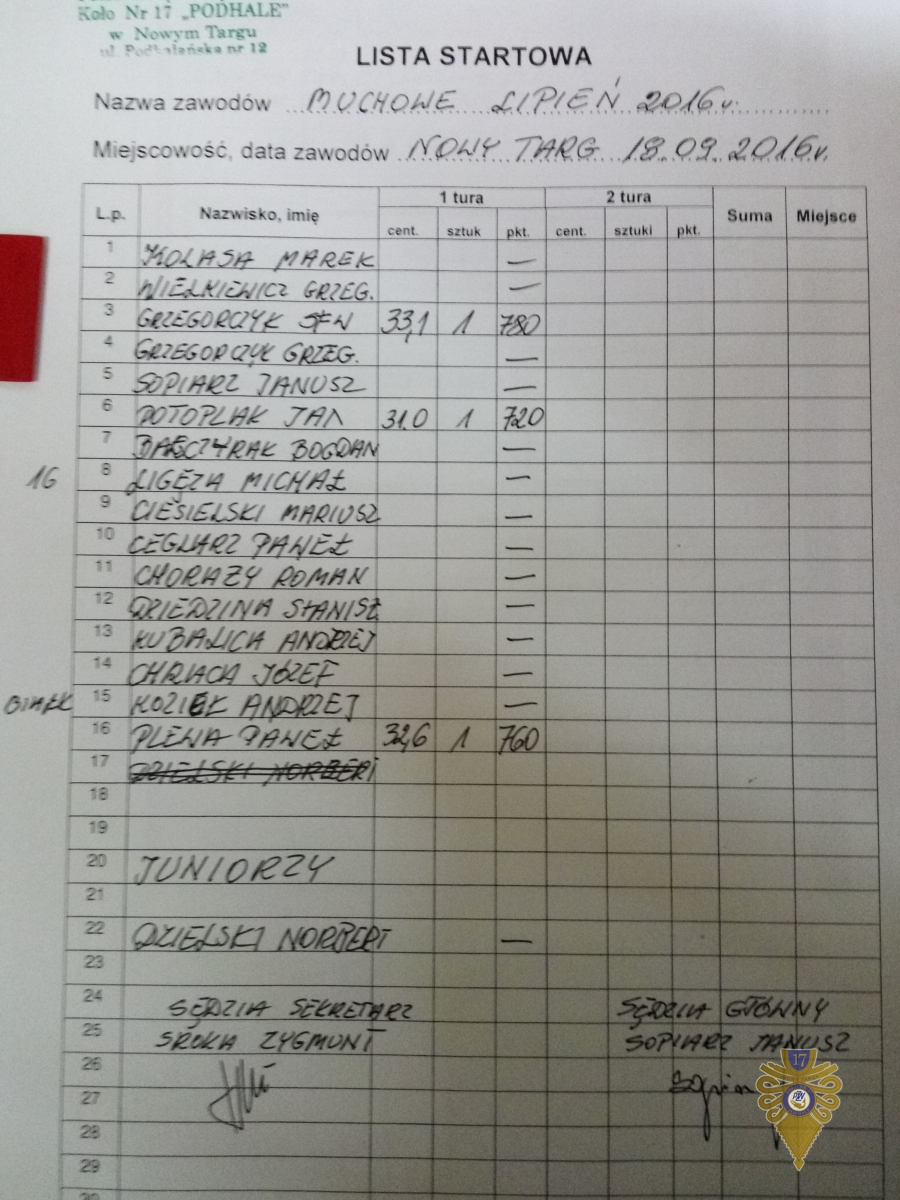 Koło Nr 17 „PODHALE”
w Nowym Targu
ul. Podhalańska nr 12
LISTA STARTOWA
Nazwa zawodów MUCHOWE LIPIEŃ 2016r.
Miejscowość, data zawodów NOWY TARG 18.09.2016r.
L.p. Nazwisko, imię 1 tura 2 tura Suma Miejsce
cent. sztuk pkt. cent. sztuki pkt.
1 KOLASA MAREK —
2 WIELKIEWICZ GRZEG. —
3 GRZEGORCZYK 33,1 1 780
4 GRZEGORCZYK GRZEG. —
5 SOPIARZ JANUSZ —
6 POTOPLAK JAN 31.0 1 720
7 BOGDAN —
16 8 LIGĘZA MICHAŁ —
9 CIESIELSKI MARIUSZ —
10 CEGLARZ PAWEŁ —
11 CHORAŻY ROMAN —
12 DZIEDZINA STANISŁ —
13 KUBALICA ANDRZEJ —
14 CHRACA JÓZEF —
15 KOZIEŁ ANDRZEJ —
16 PLEWA PAWEŁ 32,6 1 760
17 DZIELSKI NORBERT
18
19
20 JUNIORZY
21
22 DZIELSKI NORBERT —
23
24 SĘDZIA SEKRETARZ SĘDZIA GŁÓWNY
25 SROKA ZYGMUNT SOPIARZ JANUSZ
26
27
28
29
17
PZW